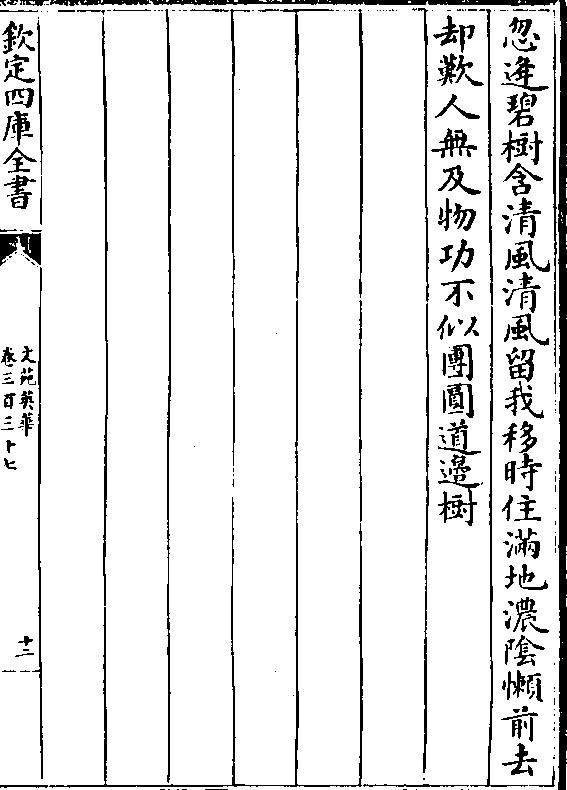 忽逢碧樹含清風清風留我移時住滿地濃陰懶前去
却歎人無及物功不似團圓道邊樹
欽定四庫全書
文苑英華
卷三百三十七
十二